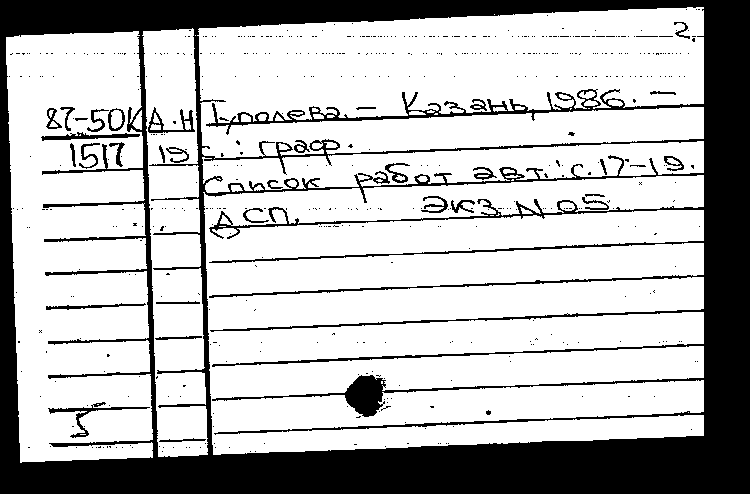 2.
87-50К А.Н Туполева. – Казань, 1986. –
1517 19 с. : граф.
Список работ авт.: с. 17-19.
ДСП. Экз N 05.
5